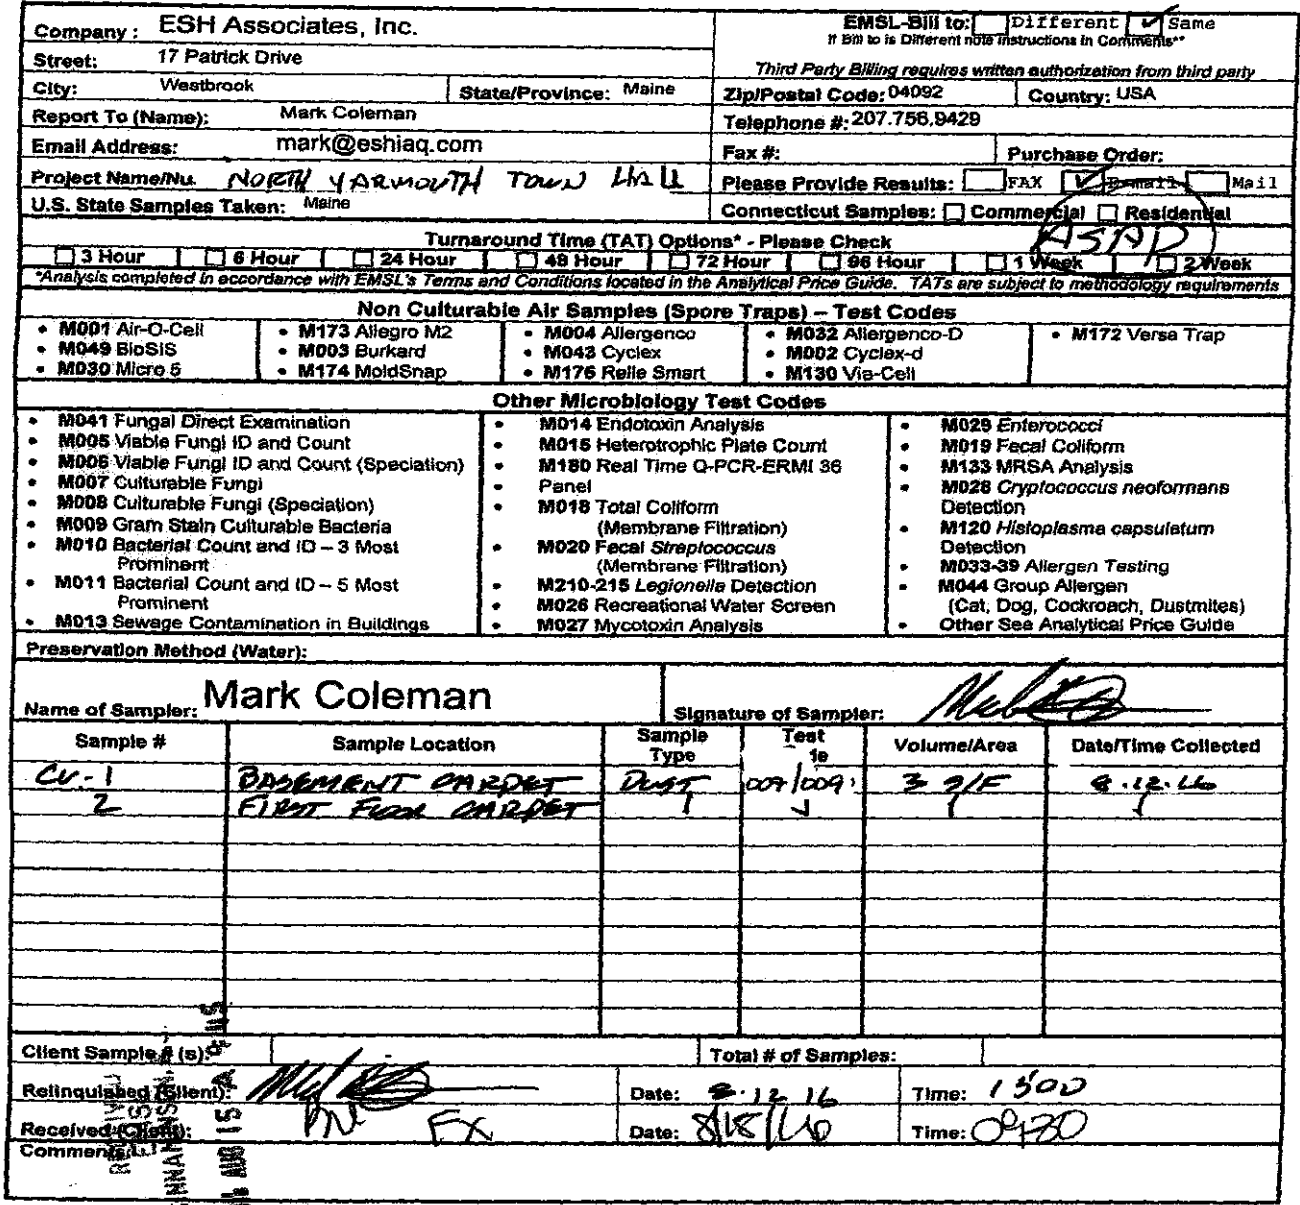 Company: ESH Associates, Inc.
EMSL-Bill to: Different Same
If Bill to is Different note instructions in Comments**
Street: 17 Patrick Drive
Third Party Billing requires written authorization from third party
City: Westbrook State/Province: Maine Zip/Postal Code: 04092 Country: USA
Report To (Name): Mark Coleman Telephone #: 207.756.9429
Email Address: mark@eshiaq.com Fax #: Purchase Order:
Project Name/Nu. NORTH YARMOUTH TOWN HALL Please Provide Results: FAX E-mail Mail
U.S. State Samples Taken: Maine Connecticut Samples: Commercial Residential
ASAP
Turnaround Time (TAT) Options* - Please Check
3 Hour 6 Hour 24 Hour 48 Hour 72 Hour 96 Hour 1 Week 2 Week
*Analysis completed in accordance with EMSL's Terms and Conditions located in the Analytical Price Guide. TATs are subject to methodology requirements
Non Culturable Air Samples (Spore Traps) – Test Codes
• M001 Air-O-Cell
• M049 BioSIS
• M030 Micro 5
• M173 Allegro M2
• M003 Burkard
• M174 MoldSnap
• M004 Allergenco
• M043 Cyclex
• M176 Relle Smart
• M032 Allergenco-D
• M002 Cyclex-d
• M130 Via-Cell
• M172 Versa Trap
Other Microbiology Test Codes
• M041 Fungal Direct Examination
• M005 Viable Fungi ID and Count
• M006 Viable Fungi ID and Count (Speciation)
• M007 Culturable Fungi
• M008 Culturable Fungi (Speciation)
• M009 Gram Stain Culturable Bacteria
• M010 Bacterial Count and ID – 3 Most
Prominent
• M011 Bacterial Count and ID – 5 Most
Prominent
• M013 Sewage Contamination in Buildings
• M014 Endotoxin Analysis
• M015 Heterotrophic Plate Count
• M180 Real Time Q-PCR-ERMI 36
• Panel
• M018 Total Coliform
(Membrane Filtration)
• M020 Fecal Streptococcus
(Membrane Filtration)
• M210-215 Legionella Detection
• M026 Recreational Water Screen
• M027 Mycotoxin Analysis
• M029 Enterococci
• M019 Fecal Coliform
• M133 MRSA Analysis
• M028 Cryptococcus neoformans
Detection
• M120 Histoplasma capsulatum
Detection
• M033-39 Allergen Testing
• M044 Group Allergen
(Cat, Dog, Cockroach, Dustmites)
• Other See Analytical Price Guide
Preservation Method (Water):
Name of Sampler: Mark Coleman Signature of Sampler:
Sample # Sample Location Sample Type Test Volume/Area Date/Time Collected
CV-1 BASEMENT CARPET DUST 007/009 8.12.16
2 FIRST FLOOR CARPET
Client Sample # (s): Total # of Samples:
Relinquished (Client): Date: 8.12.16 Time: 1500
Received (Client): FX Date: Time: 0930
Comments:
AUG 15